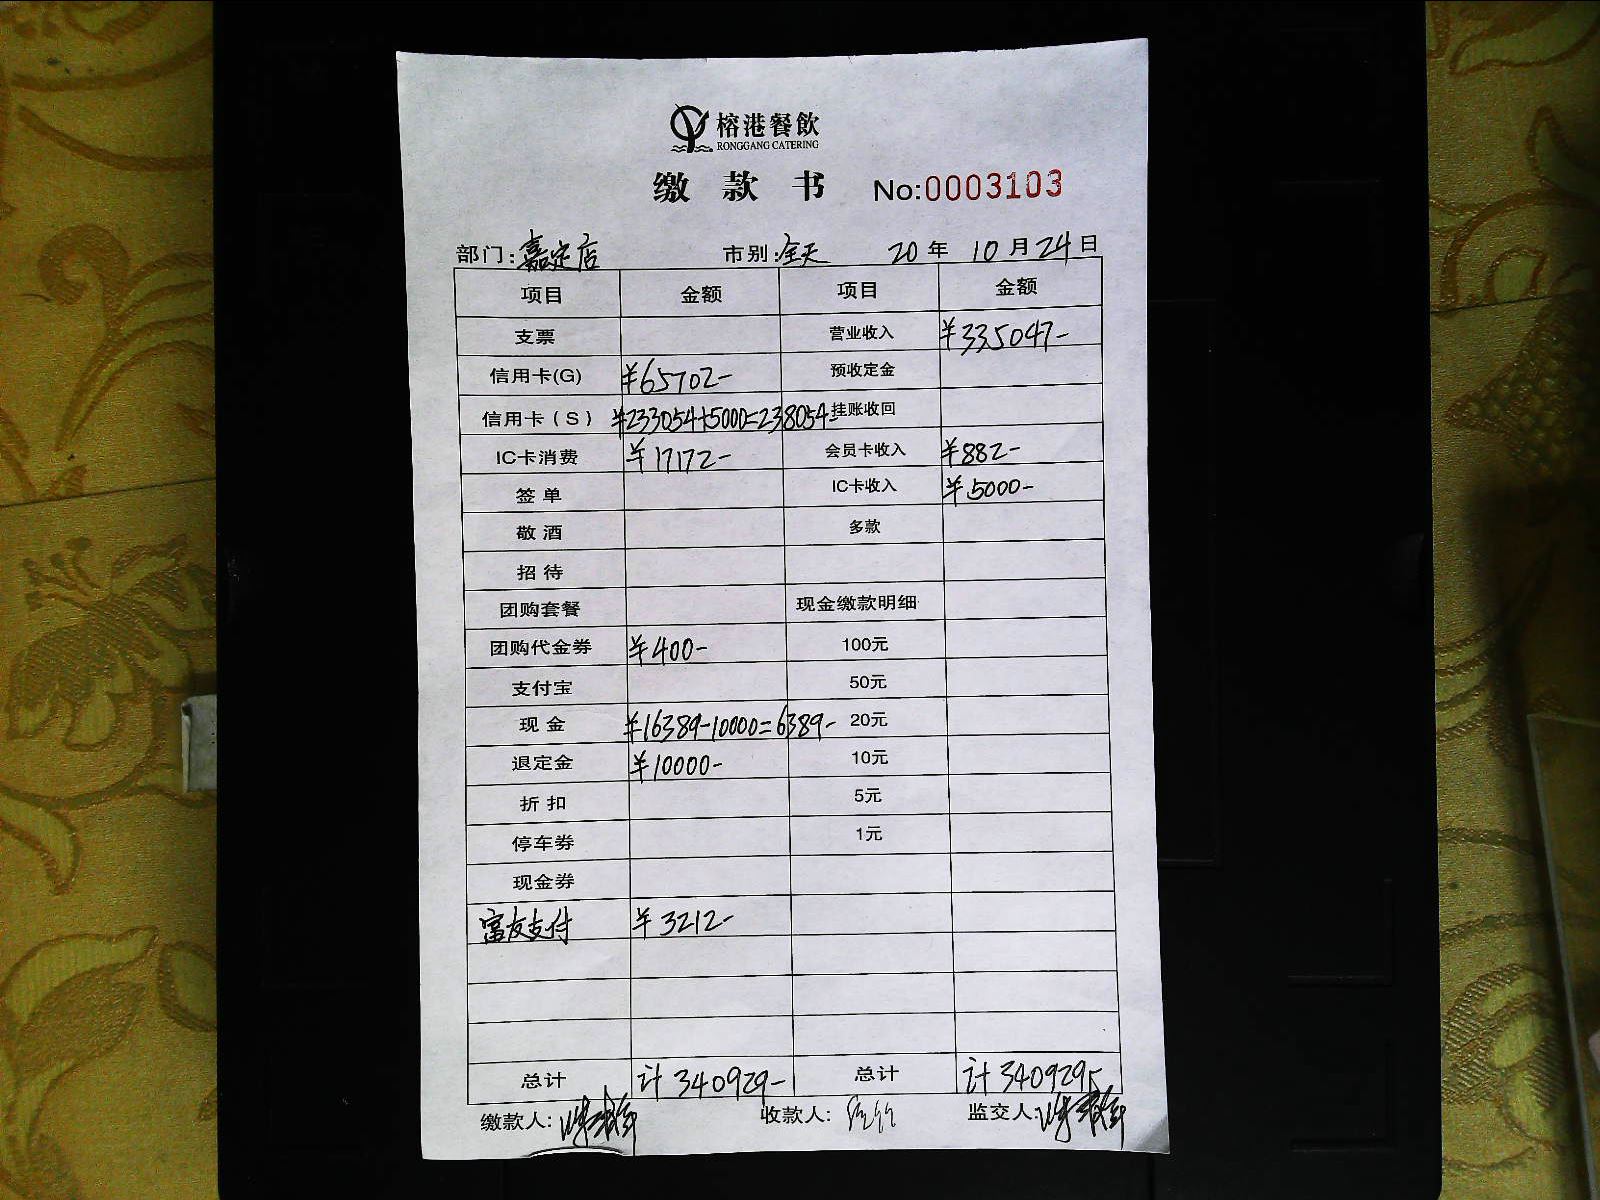 榕港餐飲
RONGGANG CATERING
缴款书 No:0003103
部门:嘉定店 市别:全天 20年10月24日
项目 金额 项目 金额
支票 营业收入 ¥335047-
信用卡(G) ¥65702- 预收定金
信用卡(S) ¥233054+5000=238054- 挂账收回
IC卡消费 ¥17172- 会员卡收入 ¥882-
签单 IC卡收入 ¥5000-
敬酒 多款
招待
团购套餐 现金缴款明细
团购代金券 ¥400- 100元
支付宝 50元
现金 ¥16389-10000=6389- 20元
退定金 ¥10000- 10元
折扣 5元
停车券 1元
现金券
富友支付 ¥3212-
总计 计340929- 总计 计340929-
缴款人: 收款人: 监交人: